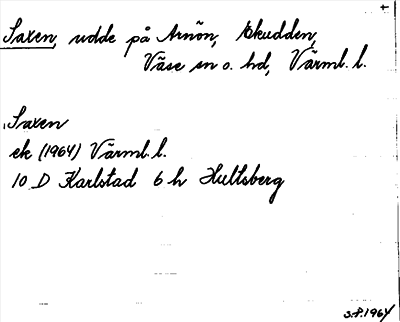 Saxen, udde på Arnön, Ekudden,
Väse sn o. hd, Värml. l.
Saxen
ek (1964) Värml. l.
10 D Karlstad 6 h Hultsberg
S.P. 1964